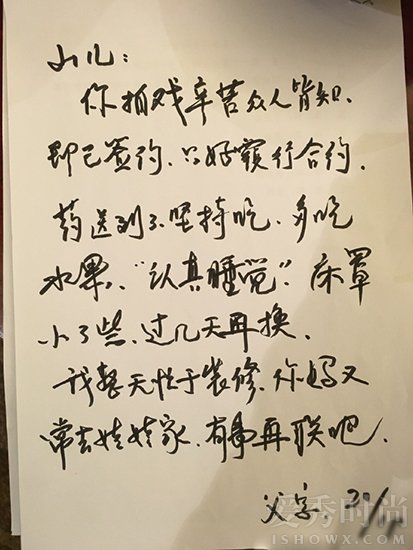 山儿：
你拍戏辛苦众人皆知、
即已签约、只好履行合约、
药送到了、坚持吃、多吃
水果、“认真睡觉”、床罩
小了些、过几天再换、
我整天忙于装修、你妈又
常去姥姥家、有事再联吧、
父字、
爱秀时尚
ISHOWX.COM